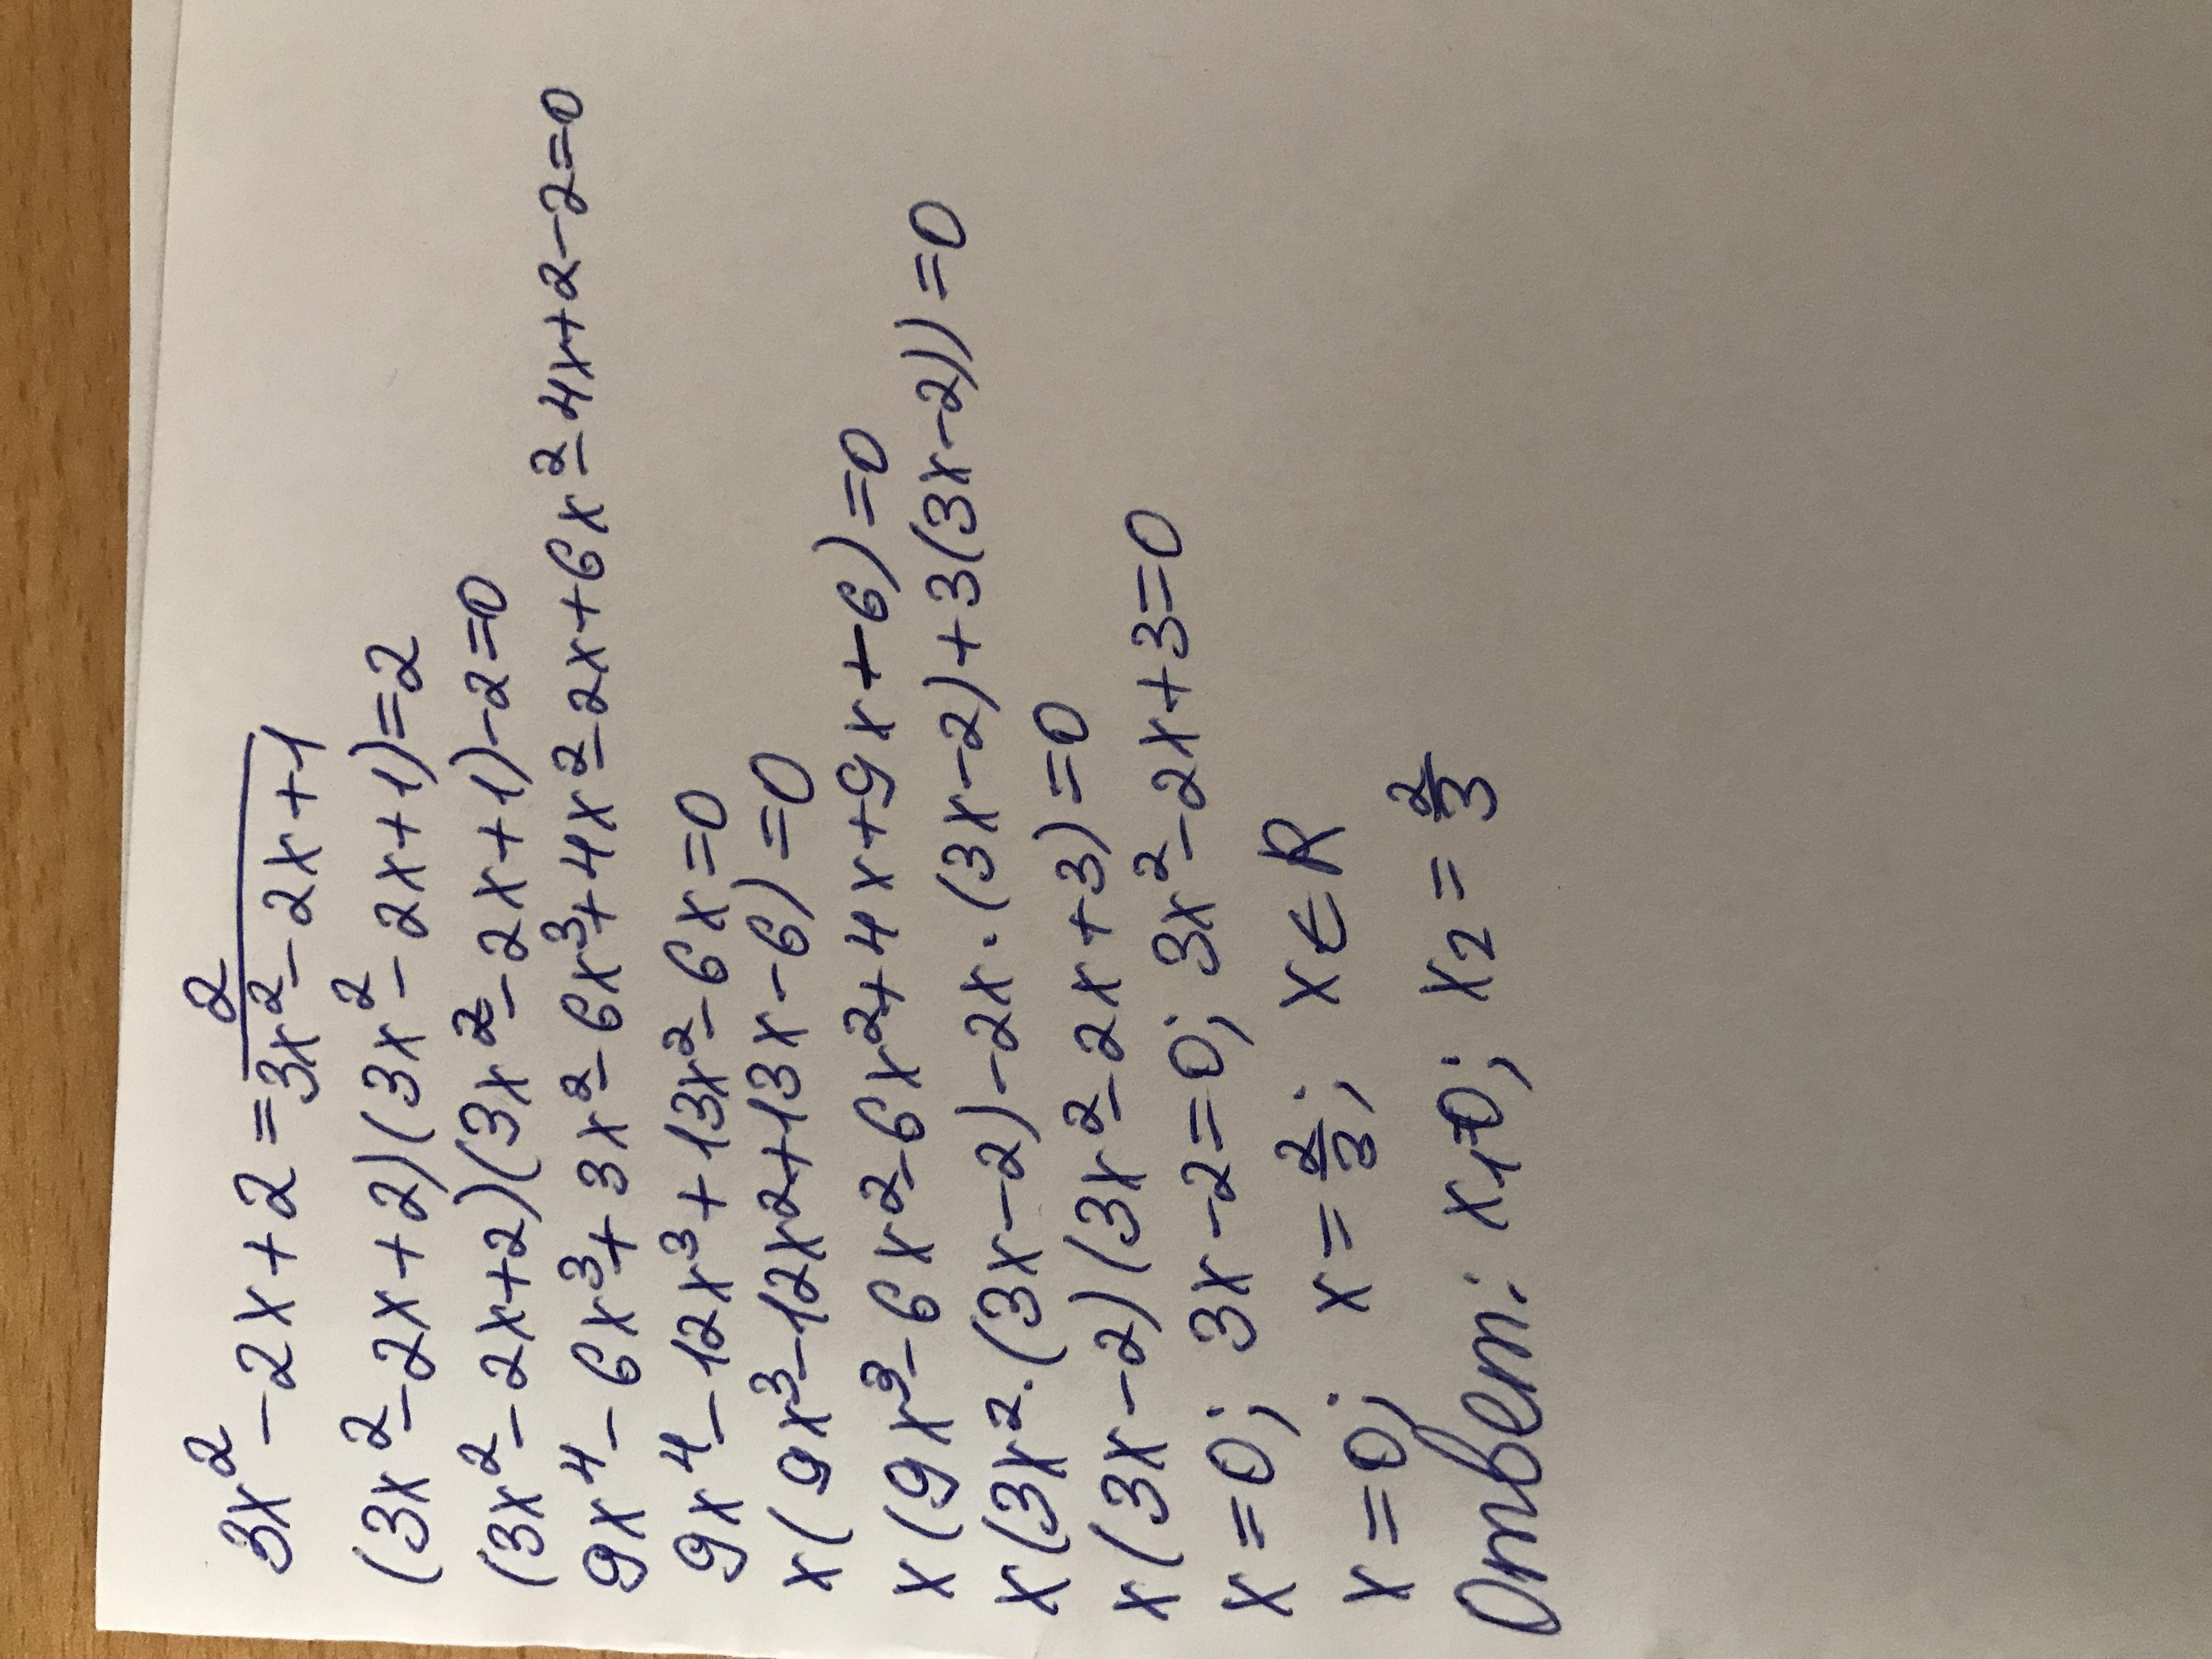 3x² - 2x + 2 = 2/(3x² - 2x + 1)
(3x² - 2x + 2)(3x² - 2x + 1) = 2
(3x² - 2x + 2)(3x² - 2x + 1) - 2 = 0
9x⁴ - 6x³ + 3x² - 6x³ + 4x² - 2x + 6x² - 4x + 2 - 2 = 0
9x⁴ - 12x³ + 13x² - 6x = 0
x(9x³ - 12x² + 13x - 6) = 0
x(9x³ - 6x² - 6x² + 4x + 9x + - 6) = 0
x(3x² · (3x - 2) - 2x · (3x - 2) + 3(3x - 2)) = 0
x(3x - 2)(3x² - 2x + 3) = 0
x = 0; 3x - 2 = 0; 3x² - 2x + 3 = 0
x = 0; x = 2/3; x ∈ R
Ответ: x₁ = 0; x₂ = 2/3